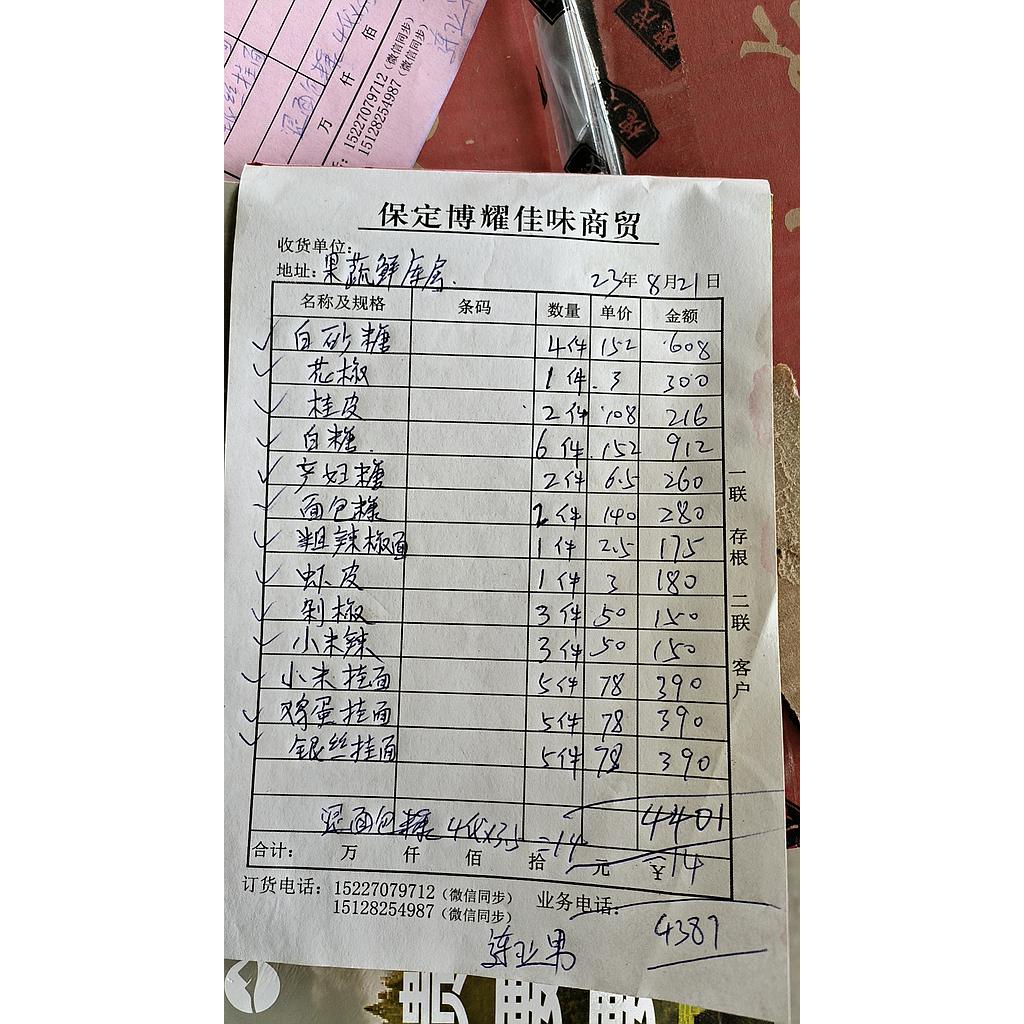 15227079712（微信同步）
15128254987（微信同步）
万 仟 佰
保定博耀佳味商贸
收货单位：
地址：果蔬鲜库房. 23年8月21日
名称及规格 条码 数量 单价 金额
白砂糖 4件 152 608
花椒 1件 3 300
桂皮 2件 108 216
白糖 6件 152 912
产妇糖 2件 6.5 260
面包糠 2件 140 280
粗辣椒面 1件 2.5 175
虾皮 1件 3 180
剁椒 3件 50 150
小米辣 3件 50 150
小米挂面 5件 78 390
鸡蛋挂面 5件 78 390
银丝挂面 5件 78 390
4401
退面包糠 4袋×3.5=14
合计： 万 仟 佰 拾 元 ¥ -14
一联 存根 二联 客户
订货电话：15227079712（微信同步） 业务电话：
15128254987（微信同步）
4387